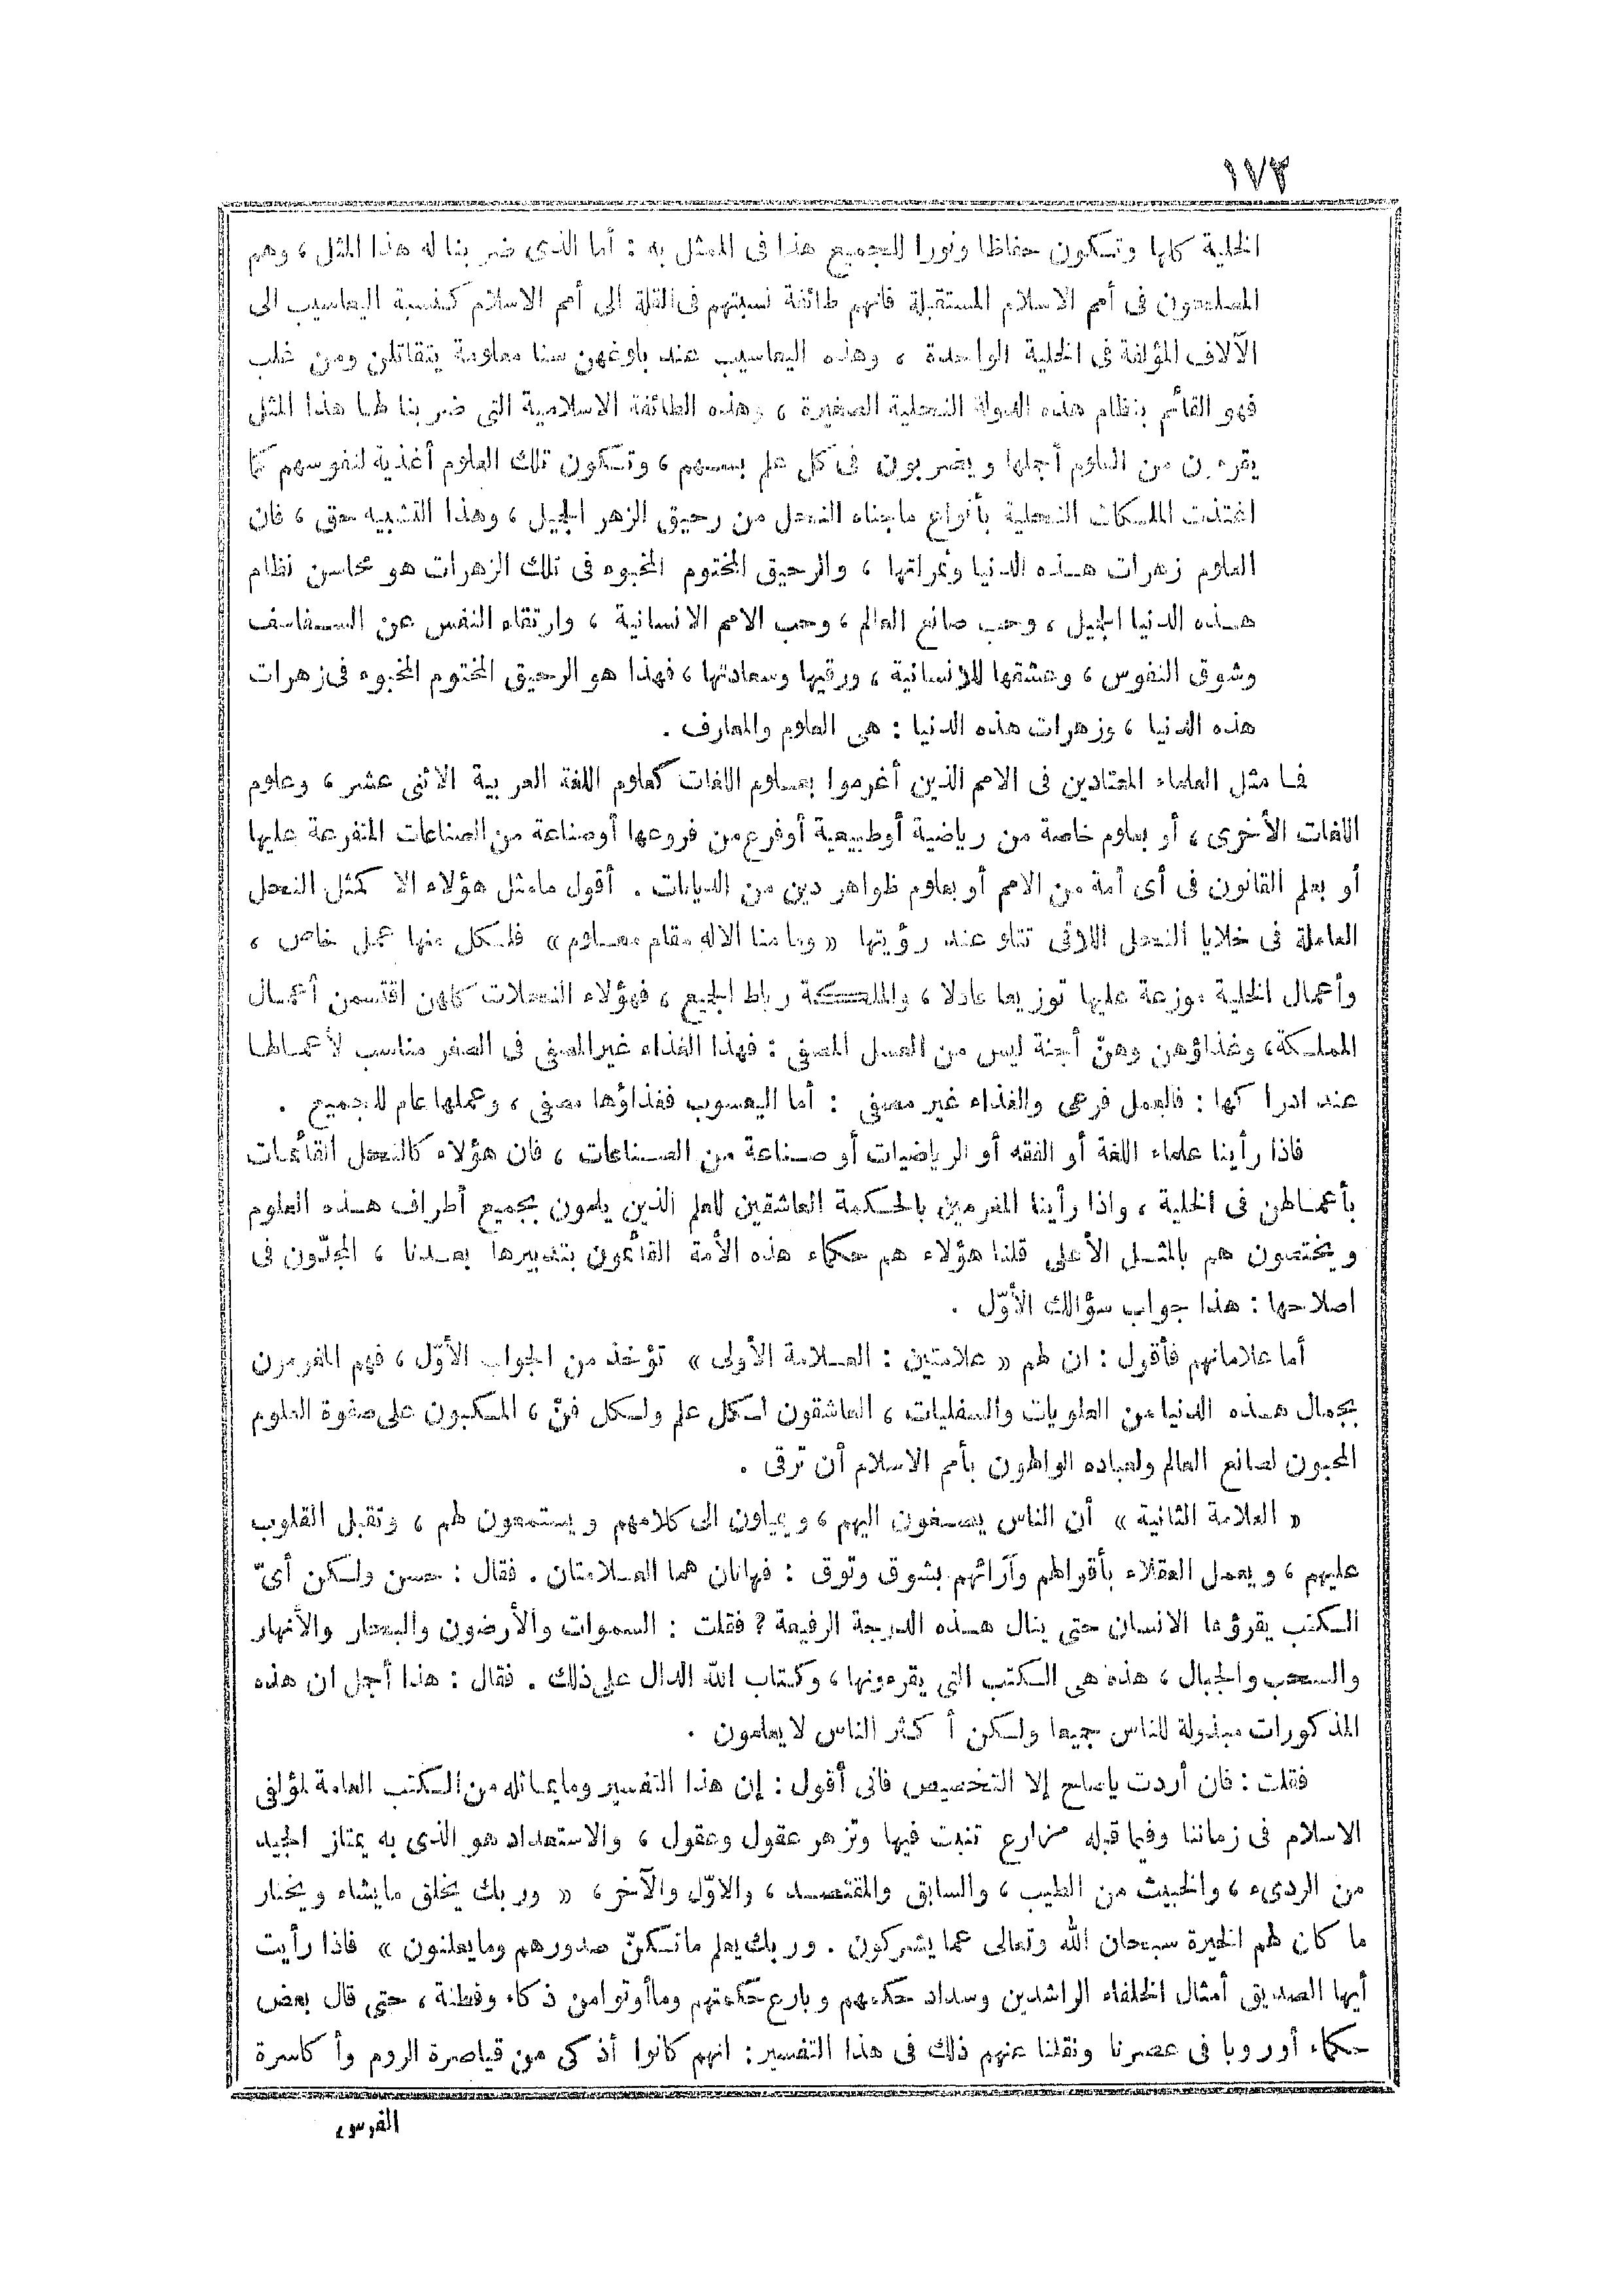 ١٧٢
الخلية كلها وتكون حفاظا ونورا للجميع هذا فى الممثل به : أما الذى ضربنا له هذا المثل ، وهم
المصلحون فى أمم الاسلام المستقبلة فانهم طائفة نسبتهم فى القلة الى أمم الاسلام كنسبة اليعاسيب الى
الآلاف المؤلفة فى الخلية الواحدة ، وهذه اليعاسيب عند بلوغهن سنا معلومة يتقاتلن ومن غلب
فهو القائم بنظام هذه الدولة النحلية الصغيرة ، وهذه الطائفة الاسلامية التى ضربنا لها هذا المثل
يقرءون من العلوم أجلها ويضربون فى كل علم بسهم ، وتكون تلك العلوم أغذية لنفوسهم كما
اغتذت الملكات النحلية بأنواع ماجناه النحل من رحيق الزهر الجميل ، وهذا التشبيه حق ، فان
العلوم زهرات هذه الدنيا وثمراتها ، والرحيق المختوم المخبوء فى تلك الزهرات هو محاسن نظام
هذه الدنيا الجميل ، وحب صانع العالم ، وحب الامم الانسانية ، وارتقاء النفس عن السفاسف
وشوق النفوس ، وعشقها للانسانية ، ورقيها وسعادتها ، فهذا هو الرحيق المختوم المخبوء فى زهرات
هذه الدنيا ، وزهرات هذه الدنيا : هى العلوم والمعارف .
فما مثل العلماء المعتادين فى الامم الذين أغرموا بعلوم اللغات كعلوم اللغة العربية الاثنى عشر ، وعلوم
اللغات الأخرى ، أو بعلوم خاصة من رياضية أوطبيعية أوفرع من فروعها أوصناعة من الصناعات المتفرعة عليها
أو بعلم القانون فى أى أمة من الامم أو بعلوم ظواهر دين من الديانات . أقول مامثل هؤلاء الا كمثل النحل
العاملة فى خلايا النحل اللاتى تتلو عند رؤيتها « وما منا الا له مقام معلوم » فلكل منها عمل خاص ،
وأعمال الخلية موزعة عليها توزيعا عادلا ، والملكة رباط الجميع ، فهؤلاء النحلات كلهن اقتسمن أعمال
المملكة ، وغذاؤهن وهنّ أجنة ليس من العسل المصفى : فهذا الغذاء غير المصفى فى الصغر مناسب لأعمالها
عند ادراكها : فالعمل فرعى والغذاء غير مصفى : أما اليعسوب فغذاؤها مصفى ، وعملها عام للجميع .
فاذا رأينا علماء اللغة أو الفقه أو الرياضيات أو صناعة من الصناعات ، فان هؤلاء كالنحل القائمات
بأعمالهن فى الخلية ، واذا رأينا المغرمين بالحكمة العاشقين للعلم الذين يلمون بجميع أطراف هذه العلوم
ويختصون هم بالمثل الأعلى قلنا هؤلاء هم حكماء هذه الأمة القائمون بتدبيرها بعدنا ، المجدّون فى
اصلاحها : هذا جواب سؤالك الأوّل .
أما علاماتهم فأقول : ان لهم « علامتين : العلامة الأولى » تؤخذ من الجواب الأوّل ، فهم المغرمون
بجمال هذه الدنيا من العلويات والسفليات ، العاشقون لكل علم ولكل فنّ ، المكبون على صفوة العلوم
المحبون لصانع العالم ولعباده الوالهون بأمم الاسلام أن ترقى .
« العلامة الثانية » أن الناس يصغون اليهم ، ويميلون الى كلامهم ويستمعون لهم ، وتقبل القلوب
عليهم ، ويعمل العقلاء بأقوالهم وآرائهم بشوق وتوق : فهاتان هما العلامتان . فقال : حسن ولكن أىّ
الكتب يقرؤها الانسان حتى ينال هذه الدرجة الرفيعة ؟ فقلت : السموات والأرضون والبحار والأنهار
والسحب والجبال ، هذه هى الكتب التى يقرءونها ، وكتاب الله الدال على ذلك . فقال : هذا أجل ان هذه
المذكورات مبذولة للناس جميعا ولكن أكثر الناس لايعلمون .
فقلت : فان أردت ياصاح إلا التخصيص فانى أقول : إن هذا التفسير ومايماثله من الكتب العامة لمؤلفى
الاسلام فى زماننا وفيما قبله مزارع تنبت فيها وتزهر عقول وعقول ، والاستعداد هو الذى به يمتاز الجيد
من الردىء ، والخبيث من الطيب ، والسابق والمقتصد ، والاوّل والآخر ، « وربك يخلق مايشاء ويختار
ما كان لهم الخيرة سبحان الله وتعالى عما يشركون . وربك يعلم ماتكنّ صدورهم ومايعلنون » فاذا رأيت
أيها الصديق أمثال الخلفاء الراشدين وسداد حكمهم وبارع حكمتهم وماأوتوا من ذكاء وفطنة ، حتى قال بعض
حكماء أوروبا فى عصرنا ونقلنا عنهم ذلك فى هذا التفسير : انهم كانوا أذكى من قياصرة الروم وأكاسرة
الفرس ،